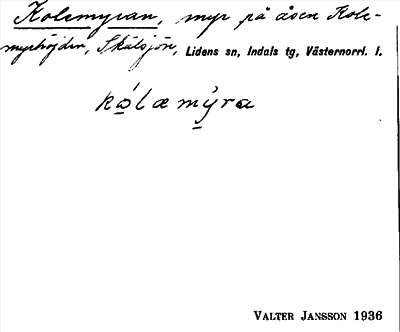 Kolemyran, myr på åsen Kole-
myrhöjden, Skälsjön, Lidens sn, Indals tg, Västernorrl. l.
kǻ̱læmý̱ra
VALTER JANSSON 1936